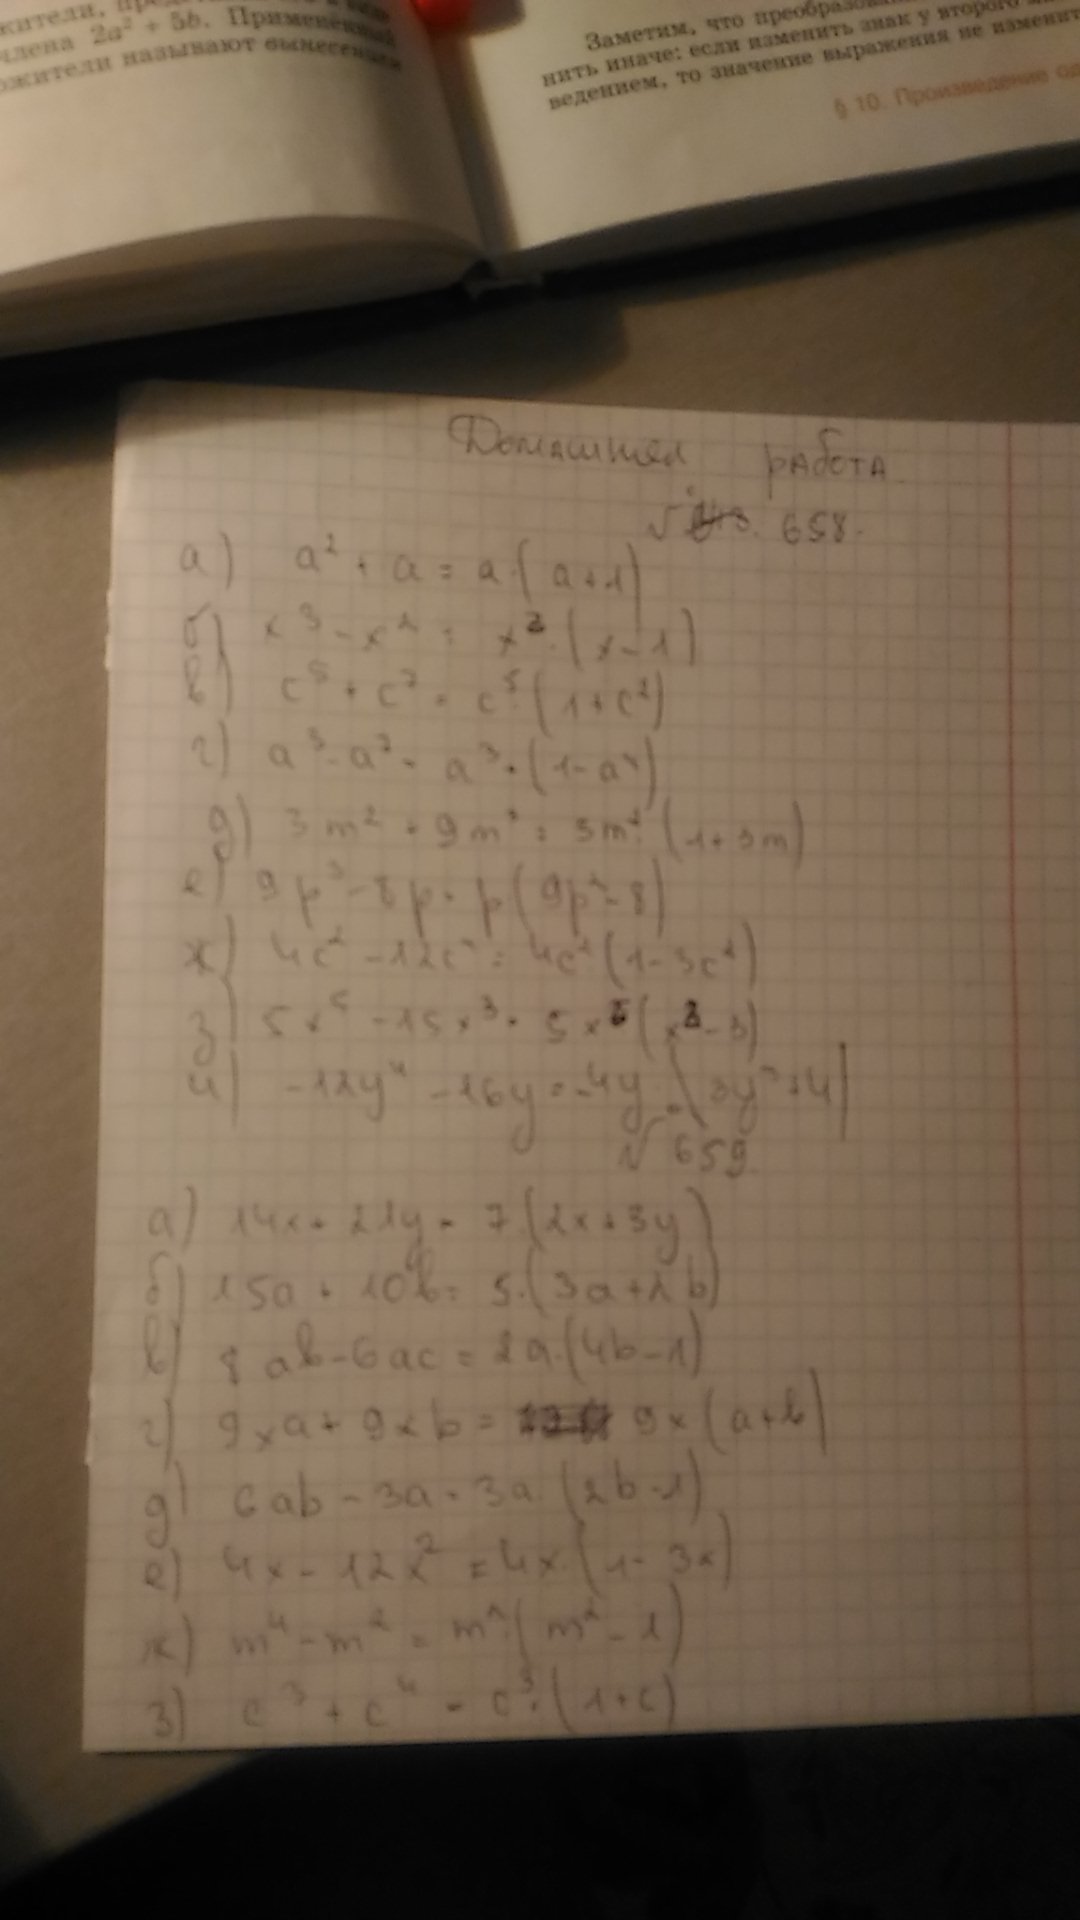 жители,
члена 2a² + 5b. Применённый
ожители называют вынесением
Заметим, что преобразова
нить иначе: если изменить знак у второго
ведением, то значение выражения не изменит
§ 10. Произведение од
Домашняя работа
√ 658.
а) a² + a = a·(a+1)
б) x³ - x² = x²·(x-1)
в) c⁵ + c⁷ = c⁵·(1+c²)
г) a³ - a⁷ = a³·(1-a⁴)
д) 3m² + 9m³ = 3m²·(1+3m)
е) 9p³ - 8p = p(9p²-8)
ж) 4c² - 12c⁴ = 4c²(1-3c²)
з) 5x⁵ - 15x³ = 5x³(x²-3)
и) -12y⁴ - 16y = -4y·(3y³+4)
√ 659.
а) 14x + 21y = 7·(2x+3y)
б) 15a + 10b = 5·(3a+2b)
в) 8ab - 6ac = 2a·(4b-1)
г) 9xa + 9xb = 9x(a+b)
д) 6ab - 3a = 3a·(2b-1)
е) 4x - 12x² = 4x·(1-3x)
ж) m⁴ - m² = m²·(m²-1)
з) c³ + c⁴ = c³·(1+c)